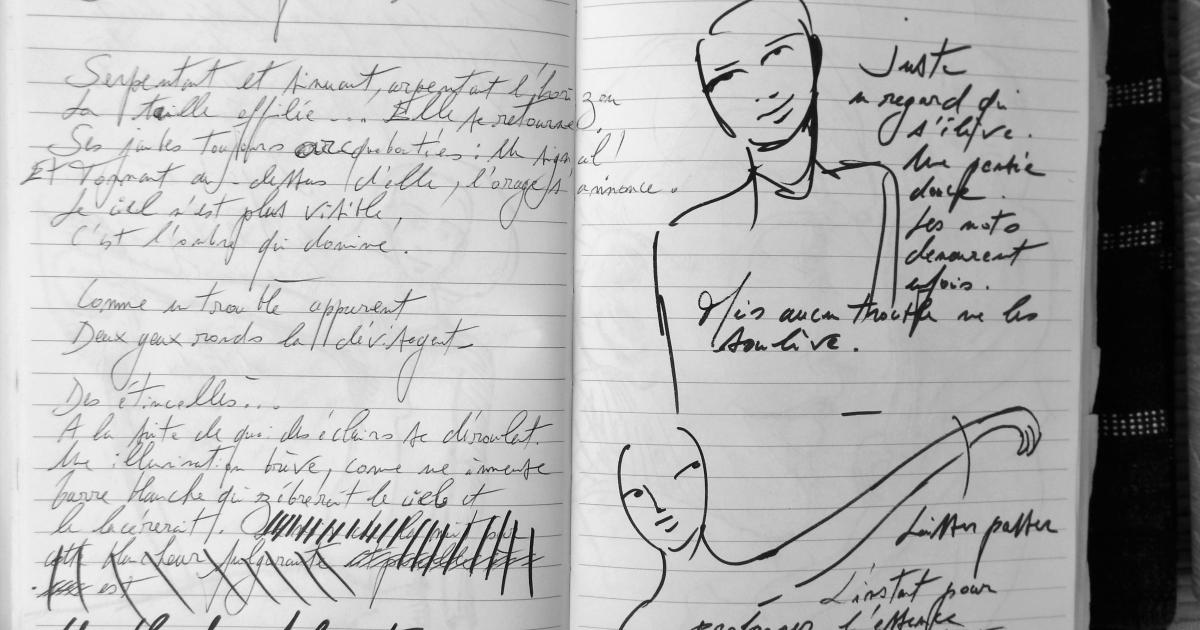 Serpentant et sinuant, arpentant l'horizon
La taille effilée... Elle se retourne.
Ses jambes toujours arcqueboutées : Un signal !
Et Tonnant au-dessus d'elle, l'orage s'annonce.
Le ciel n'est plus visible,
C'est l'ombre qui domine.
Comme un trouble apparent
Deux yeux ronds la dévisagent
Des étincelles...
A la suite de quoi des éclairs se déroulent.
Une illumination brève, comme une immense
barre blanche qui zèbrerait le ciel et
le lacèrerait.
cette blancheur fulgurante
est
Juste
un regard qui
s'élève.
Une pensée
douce.
Les mots
demeurent
enfouis.
Mais aucun trouble ne les
soulève.
Laisser passer
L'instant pour
l'essence